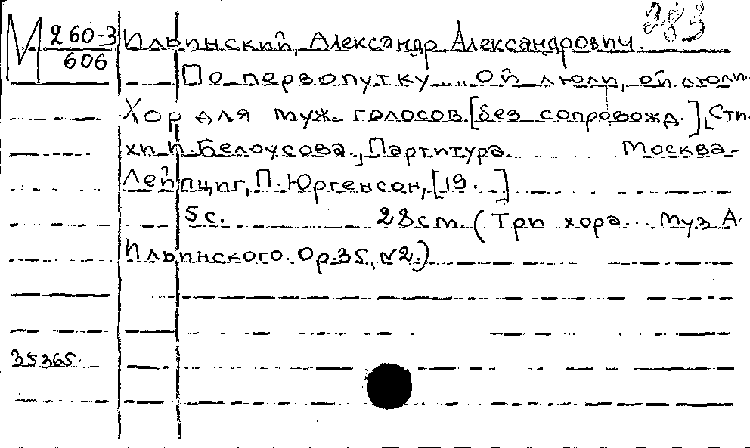 283
М 260-3
606
Ильинский, Александр Александрович.
По первопутку ... Ой люли, ой люли.
Хор для муж. голосов [без сопровожд.], Сти-
хи И. Белоусова, Партитура. Москва-
Лейпциг, П. Юргенсон, [19. ]
5 с. 28 см. (Три хора ... Муз А.
Ильинского. Ор. 35, №2.)
35365.